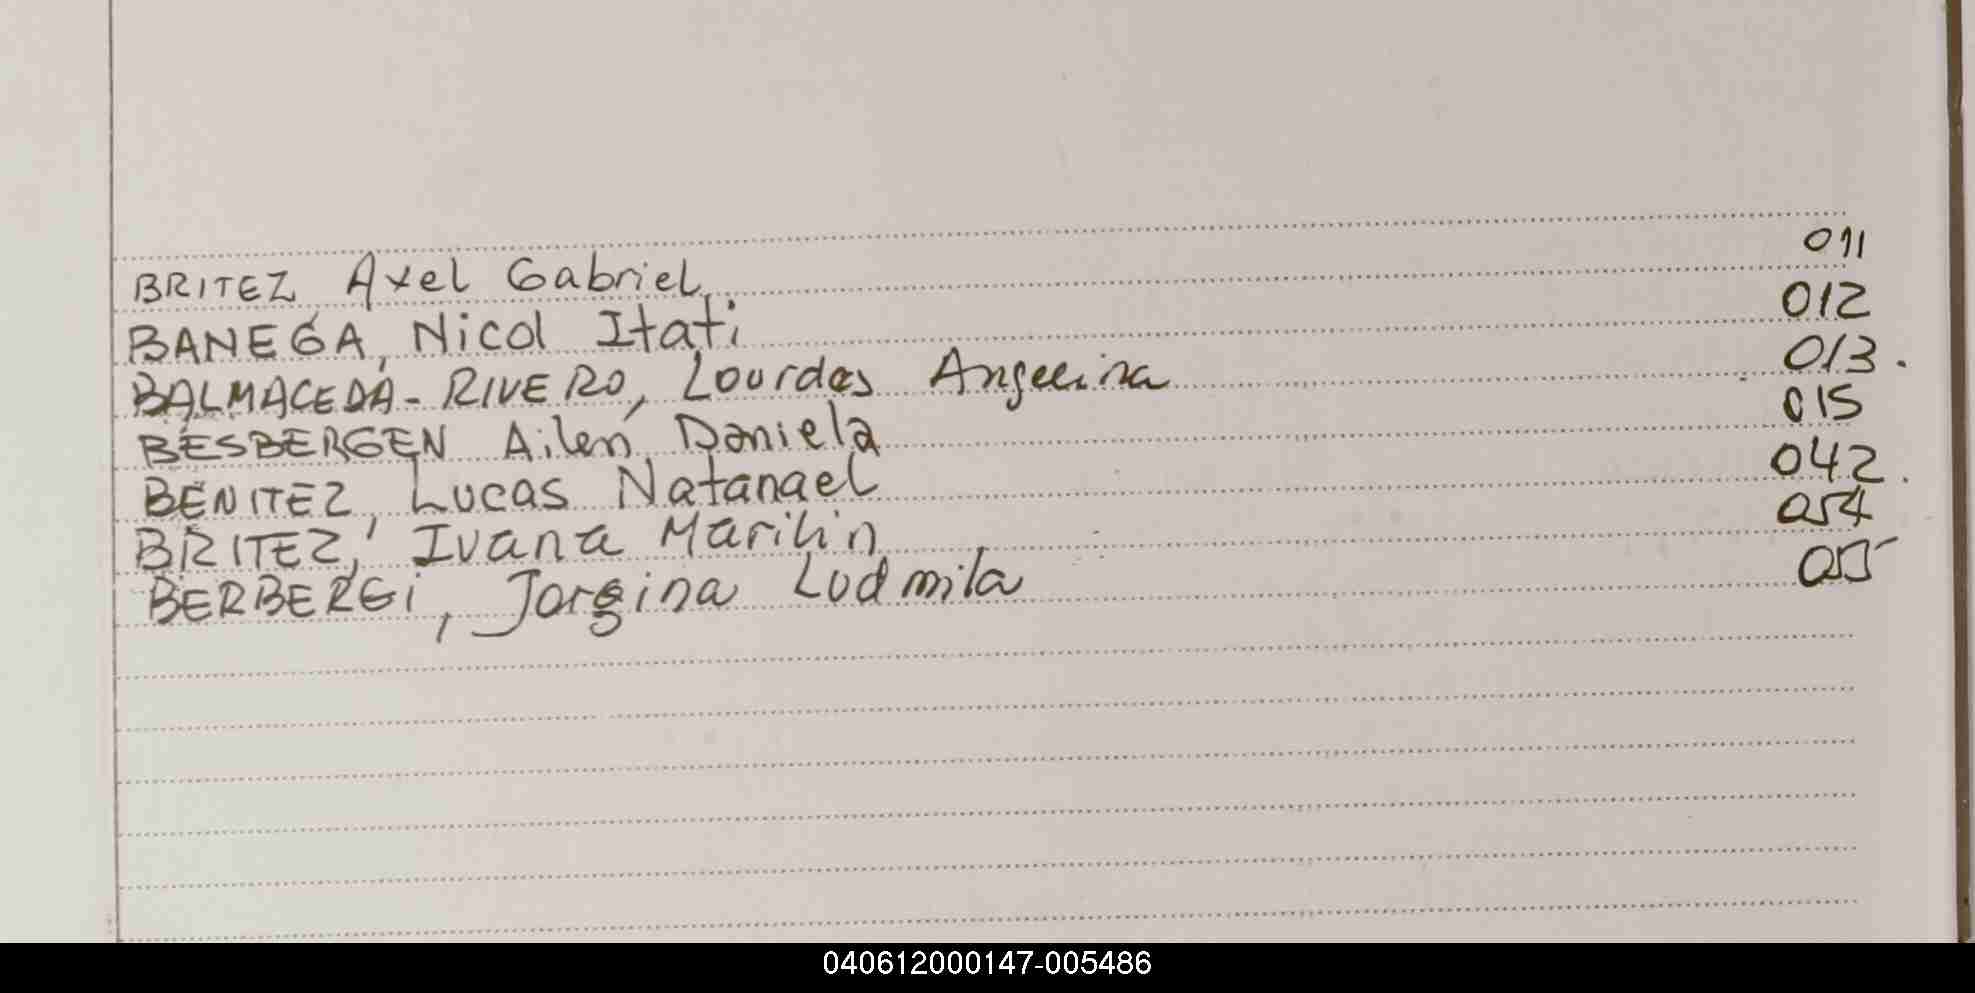 BRITEZ Axel Gabriel 011
BANEGA, Nicol Itati 012
BALMACEDA - RIVERO, Lourdes Angelina 013.
BESBERGEN Ailén Daniela 015
BENITEZ, Lucas Natanael 042.
BRITEZ, Ivana Marilin 054
BERBERGi, Jorgina Ludmila 055
040612000147-005486